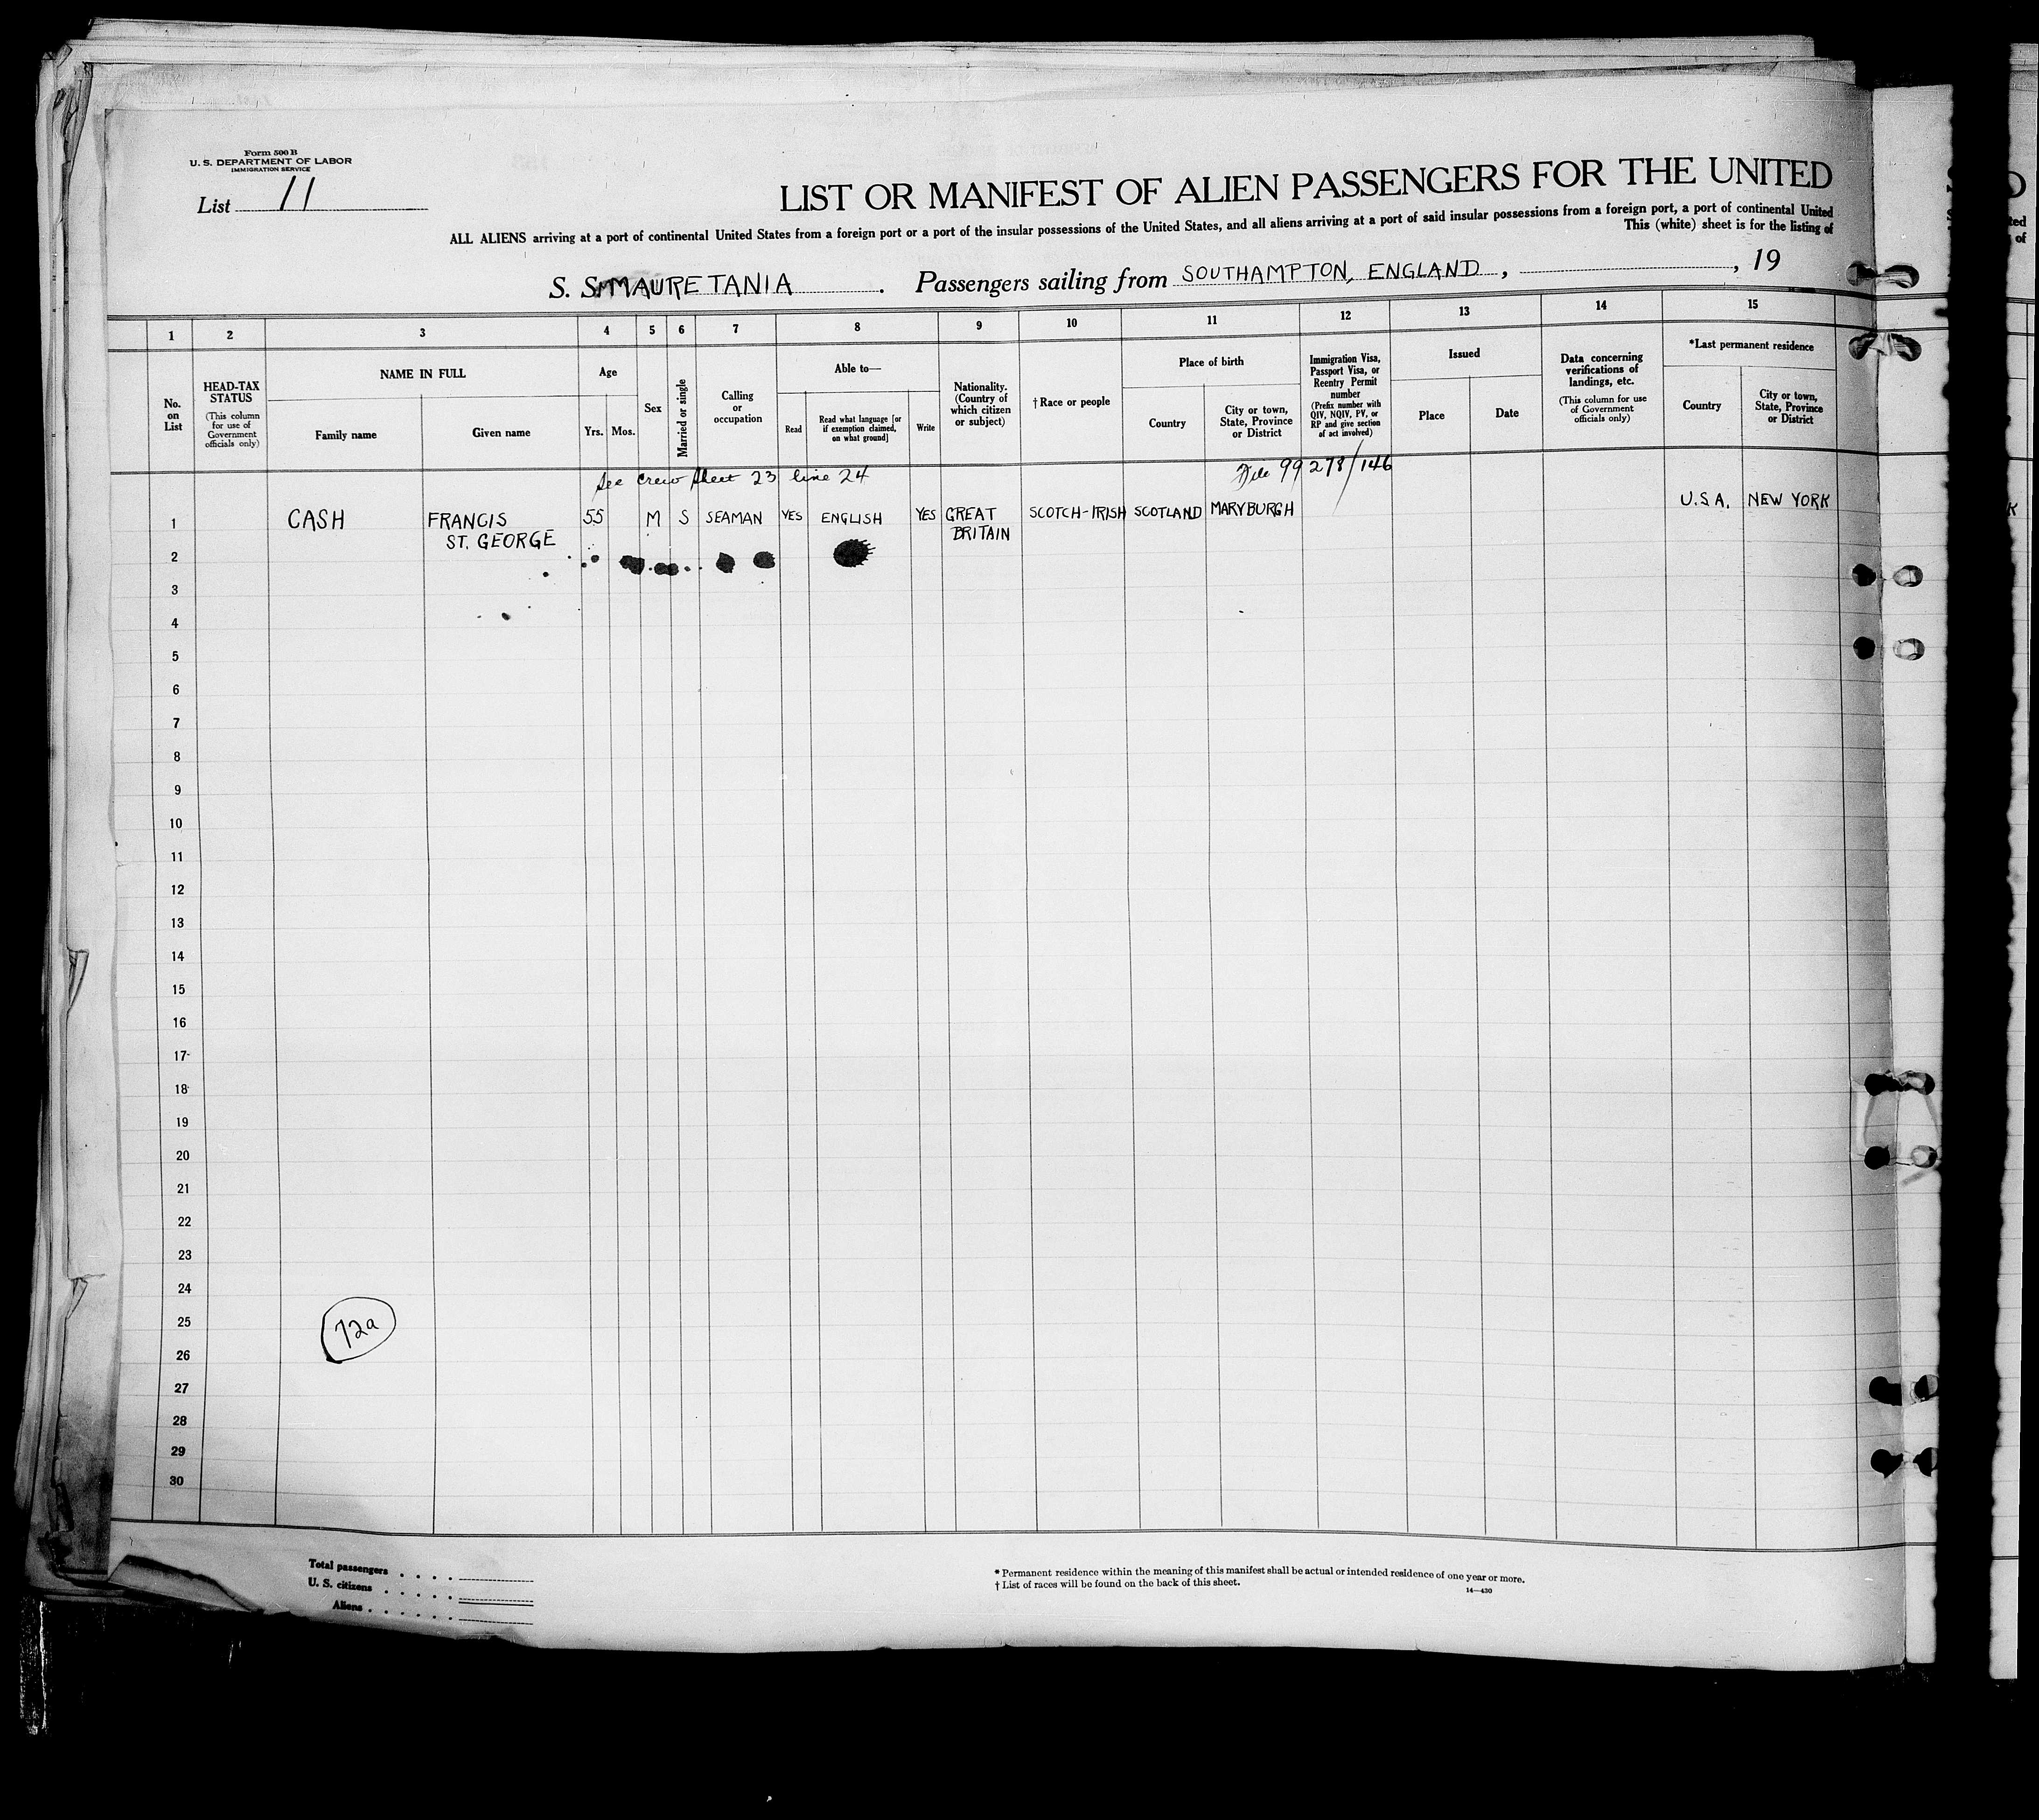 Form 500 B
U. S. DEPARTMENT OF LABOR
IMMIGRATION SERVICE
List 11
LIST OR MANIFEST OF ALIEN PASSENGERS FOR THE UNITED
ALL ALIENS arriving at a port of continental United States from a foreign port or a port of the insular possessions of the United States, and all aliens arriving at a port of said insular possessions from a foreign port, a port of continental United
This (white) sheet is for the listing of
S. S. MAURETANIA. Passengers sailing from SOUTHAMPTON, ENGLAND, , 19
1 2 3 4 5 6 7 8 9 10 11 12 13 14 15
No. on List
HEAD-TAX STATUS
(This column for use of Government officials only)
NAME IN FULL
Family name
Given name
Age
Yrs. Mos.
Sex
Married or single
Calling or occupation
Able to—
Read
Read what language [or if exemption claimed, on what ground]
Write
Nationality. (Country of which citizen or subject)
† Race or people
Place of birth
Country
City or town, State, Province or District
Immigration Visa, Passport Visa, or Reentry Permit number
(Prefix number with QIV, NQIV, PV, or RP and give section of act involved)
Issued
Place
Date
Data concerning verifications of landings, etc.
(This column for use of Government officials only)
*Last permanent residence
Country
City or town, State, Province or District
See crew sheet 23 line 24 File 99278/146
1 CASH FRANCIS 55 M S SEAMAN YES ENGLISH YES GREAT SCOTCH-IRISH SCOTLAND MARYBURGH U.S.A. NEW YORK
ST. GEORGE BRITAIN
2
3
4
5
6
7
8
9
10
11
12
13
14
15
16
17
18
19
20
21
22
23
24
25
72a
26
27
28
29
30
Total passengers . . . .
U. S. citizens . . . .
Aliens . . . . . .
* Permanent residence within the meaning of this manifest shall be actual or intended residence of one year or more.
† List of races will be found on the back of this sheet.
14—430